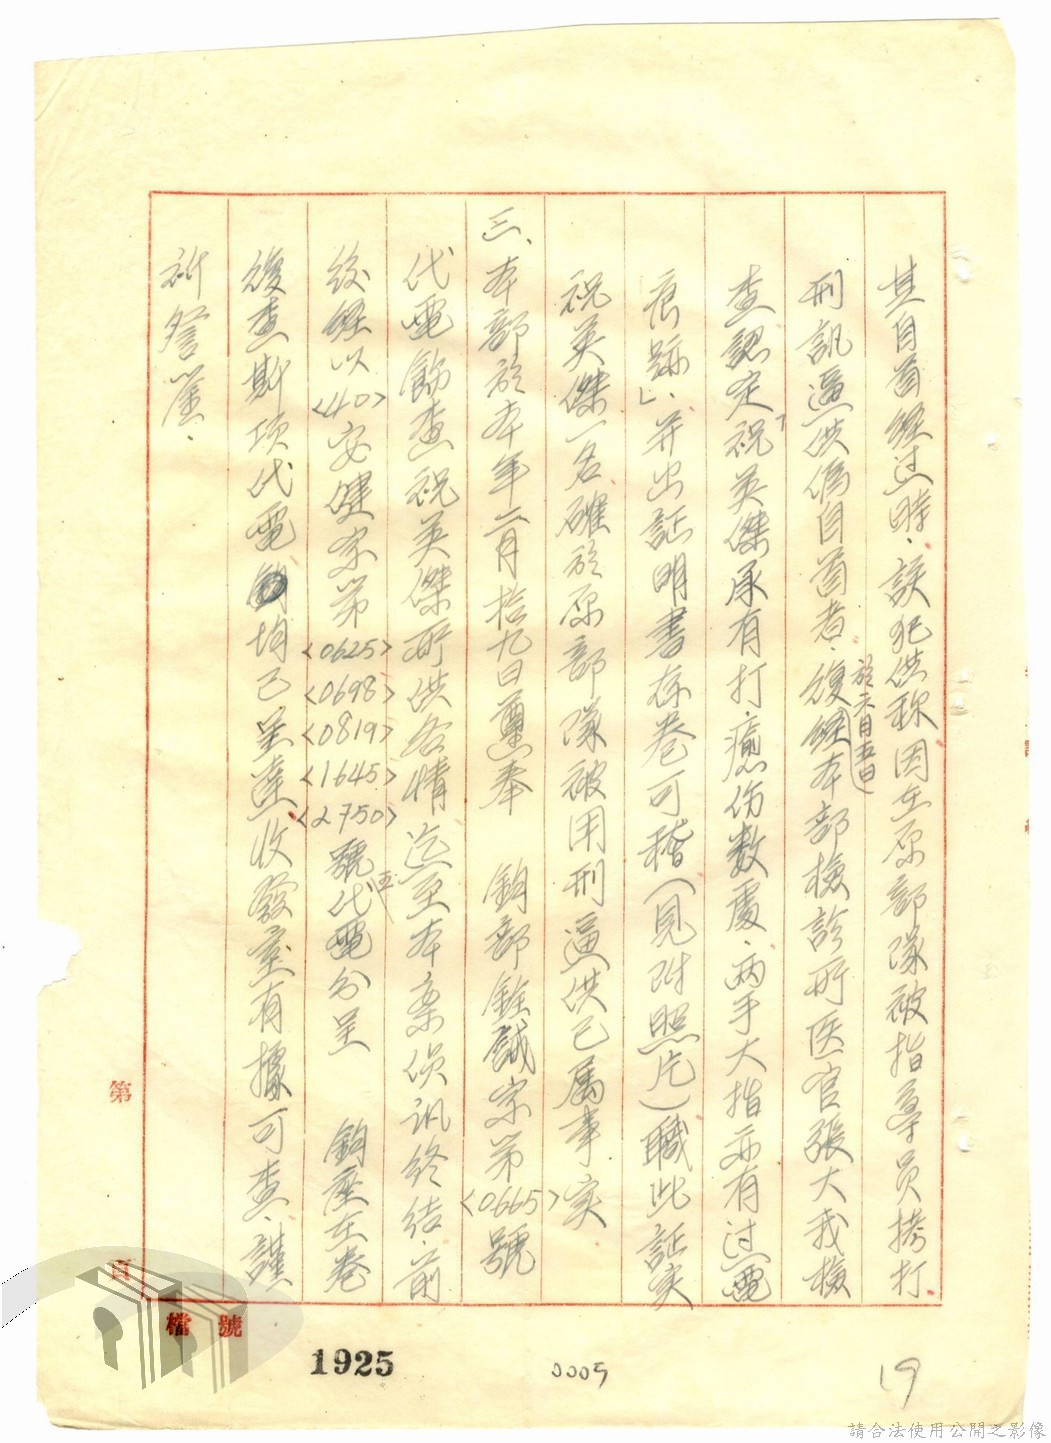 其自首經过時．該犯供称因在原部隊被指導員拷打
刑訊逼供偽自首者．復經本部檢診所医官張大我檢
於六月五日
查認定「祝英傑承有打瘉伤数處．両手大指亦有过電
痕跡」．并出証明書存卷可稽(見附照片)職此証实
祝英傑一名確於原部隊被用刑逼供已属事实
三、本部於本年二月拾九日蕙奉 鈞部銓誠宗第<0665>號
代電飭查祝英傑所供各情迄至本案偵訊終结．前
後經以<40>安健宗第<0625><0698><0819><1645><2750>號代電分呈 鈞座在卷
復查斯項代電均已呈達收發室有據可查．謹
祈詧鉴．
第
頁
檔號
1925
0005
19
請合法使用公開之影像